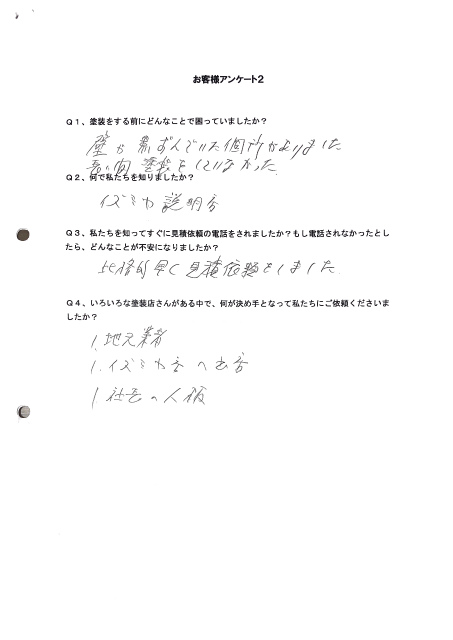 お客様アンケート2
Q1、塗装をする前にどんなことで困っていましたか？
壁が黒ずんでいた個所がありました
長い間 塗装をしていなかった
Q2、何で私たちを知りましたか？
イズミカ説明会
Q3、私たちを知ってすぐに見積依頼の電話をされましたか？もし電話されなかったとし
たら、どんなことが不安になりましたか？
比格的早く見積依頼をしました
Q4、いろいろな塗装店さんがある中で、何が決め手となって私たちにご依頼くださいま
したか？
1.地元業者
1.イズミカ の
1.社長の人